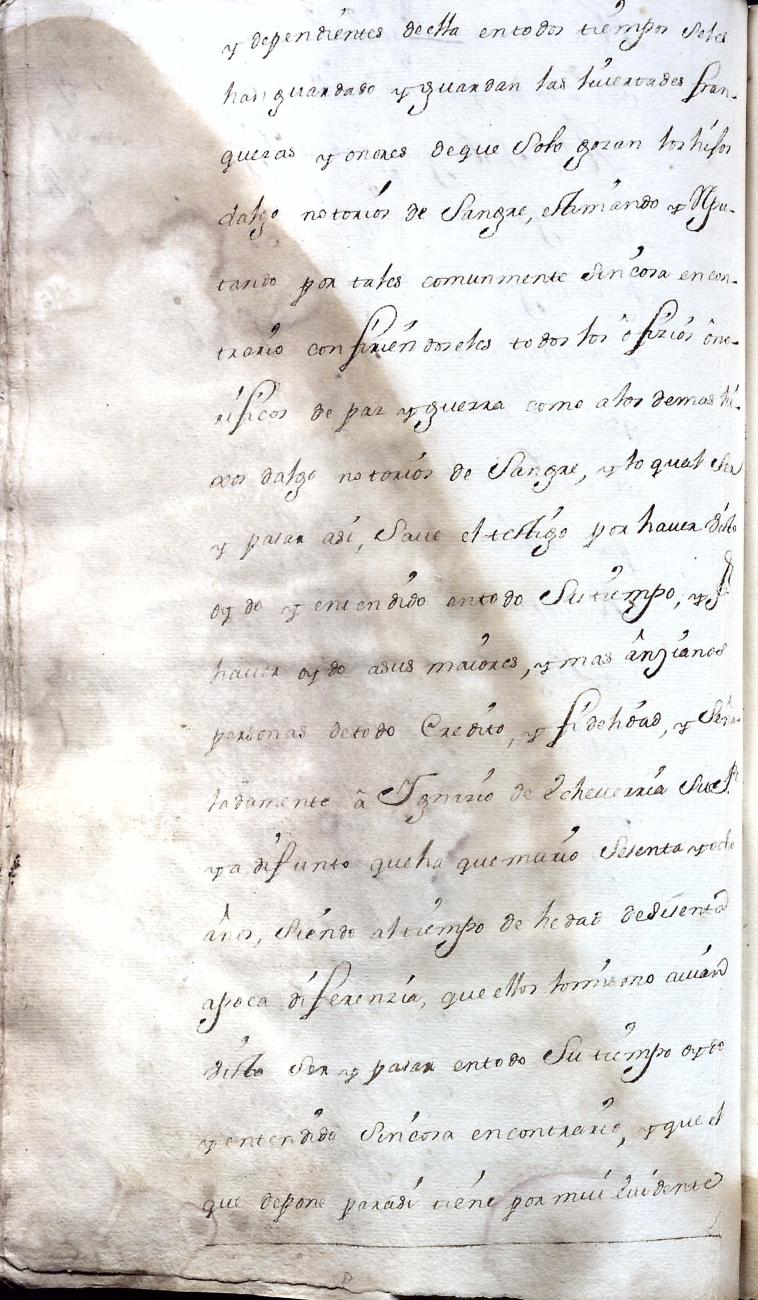 y dependientes de ella entodos tiempos seles
han guardado y guardan las livertades fran-
quezas y onores deque solo gozan los hijos
dalgo notorios de Sangre, estimando y Repu-
tando por tales comunmente sin cosa encon-
trario confiriendoseles todos los ofizios ono-
rificos de paz y guerra como alos demas hi-
xos dalgo notorios de Sangre, y lo qual ser
y pasar asi, save el testigo por haver visto
oydo y entendido entodo Su tiempo, y
haver oydo asus maiores, y mas anzianos
personas detodo Credito, y fidelidad, y Seña-
ladamente â Ygnazio de Echeverria Su
ya difunto queha quemurio Sesenta y ocho
años, siendo altiempo de hedad desesenta
apoca diferenzia, que ellos lomismo avian
visto ser y pasar entodo Su tiempo oydo
y entendido sin cosa encontrario, y que el
que depone parasi tiene por mui evidente